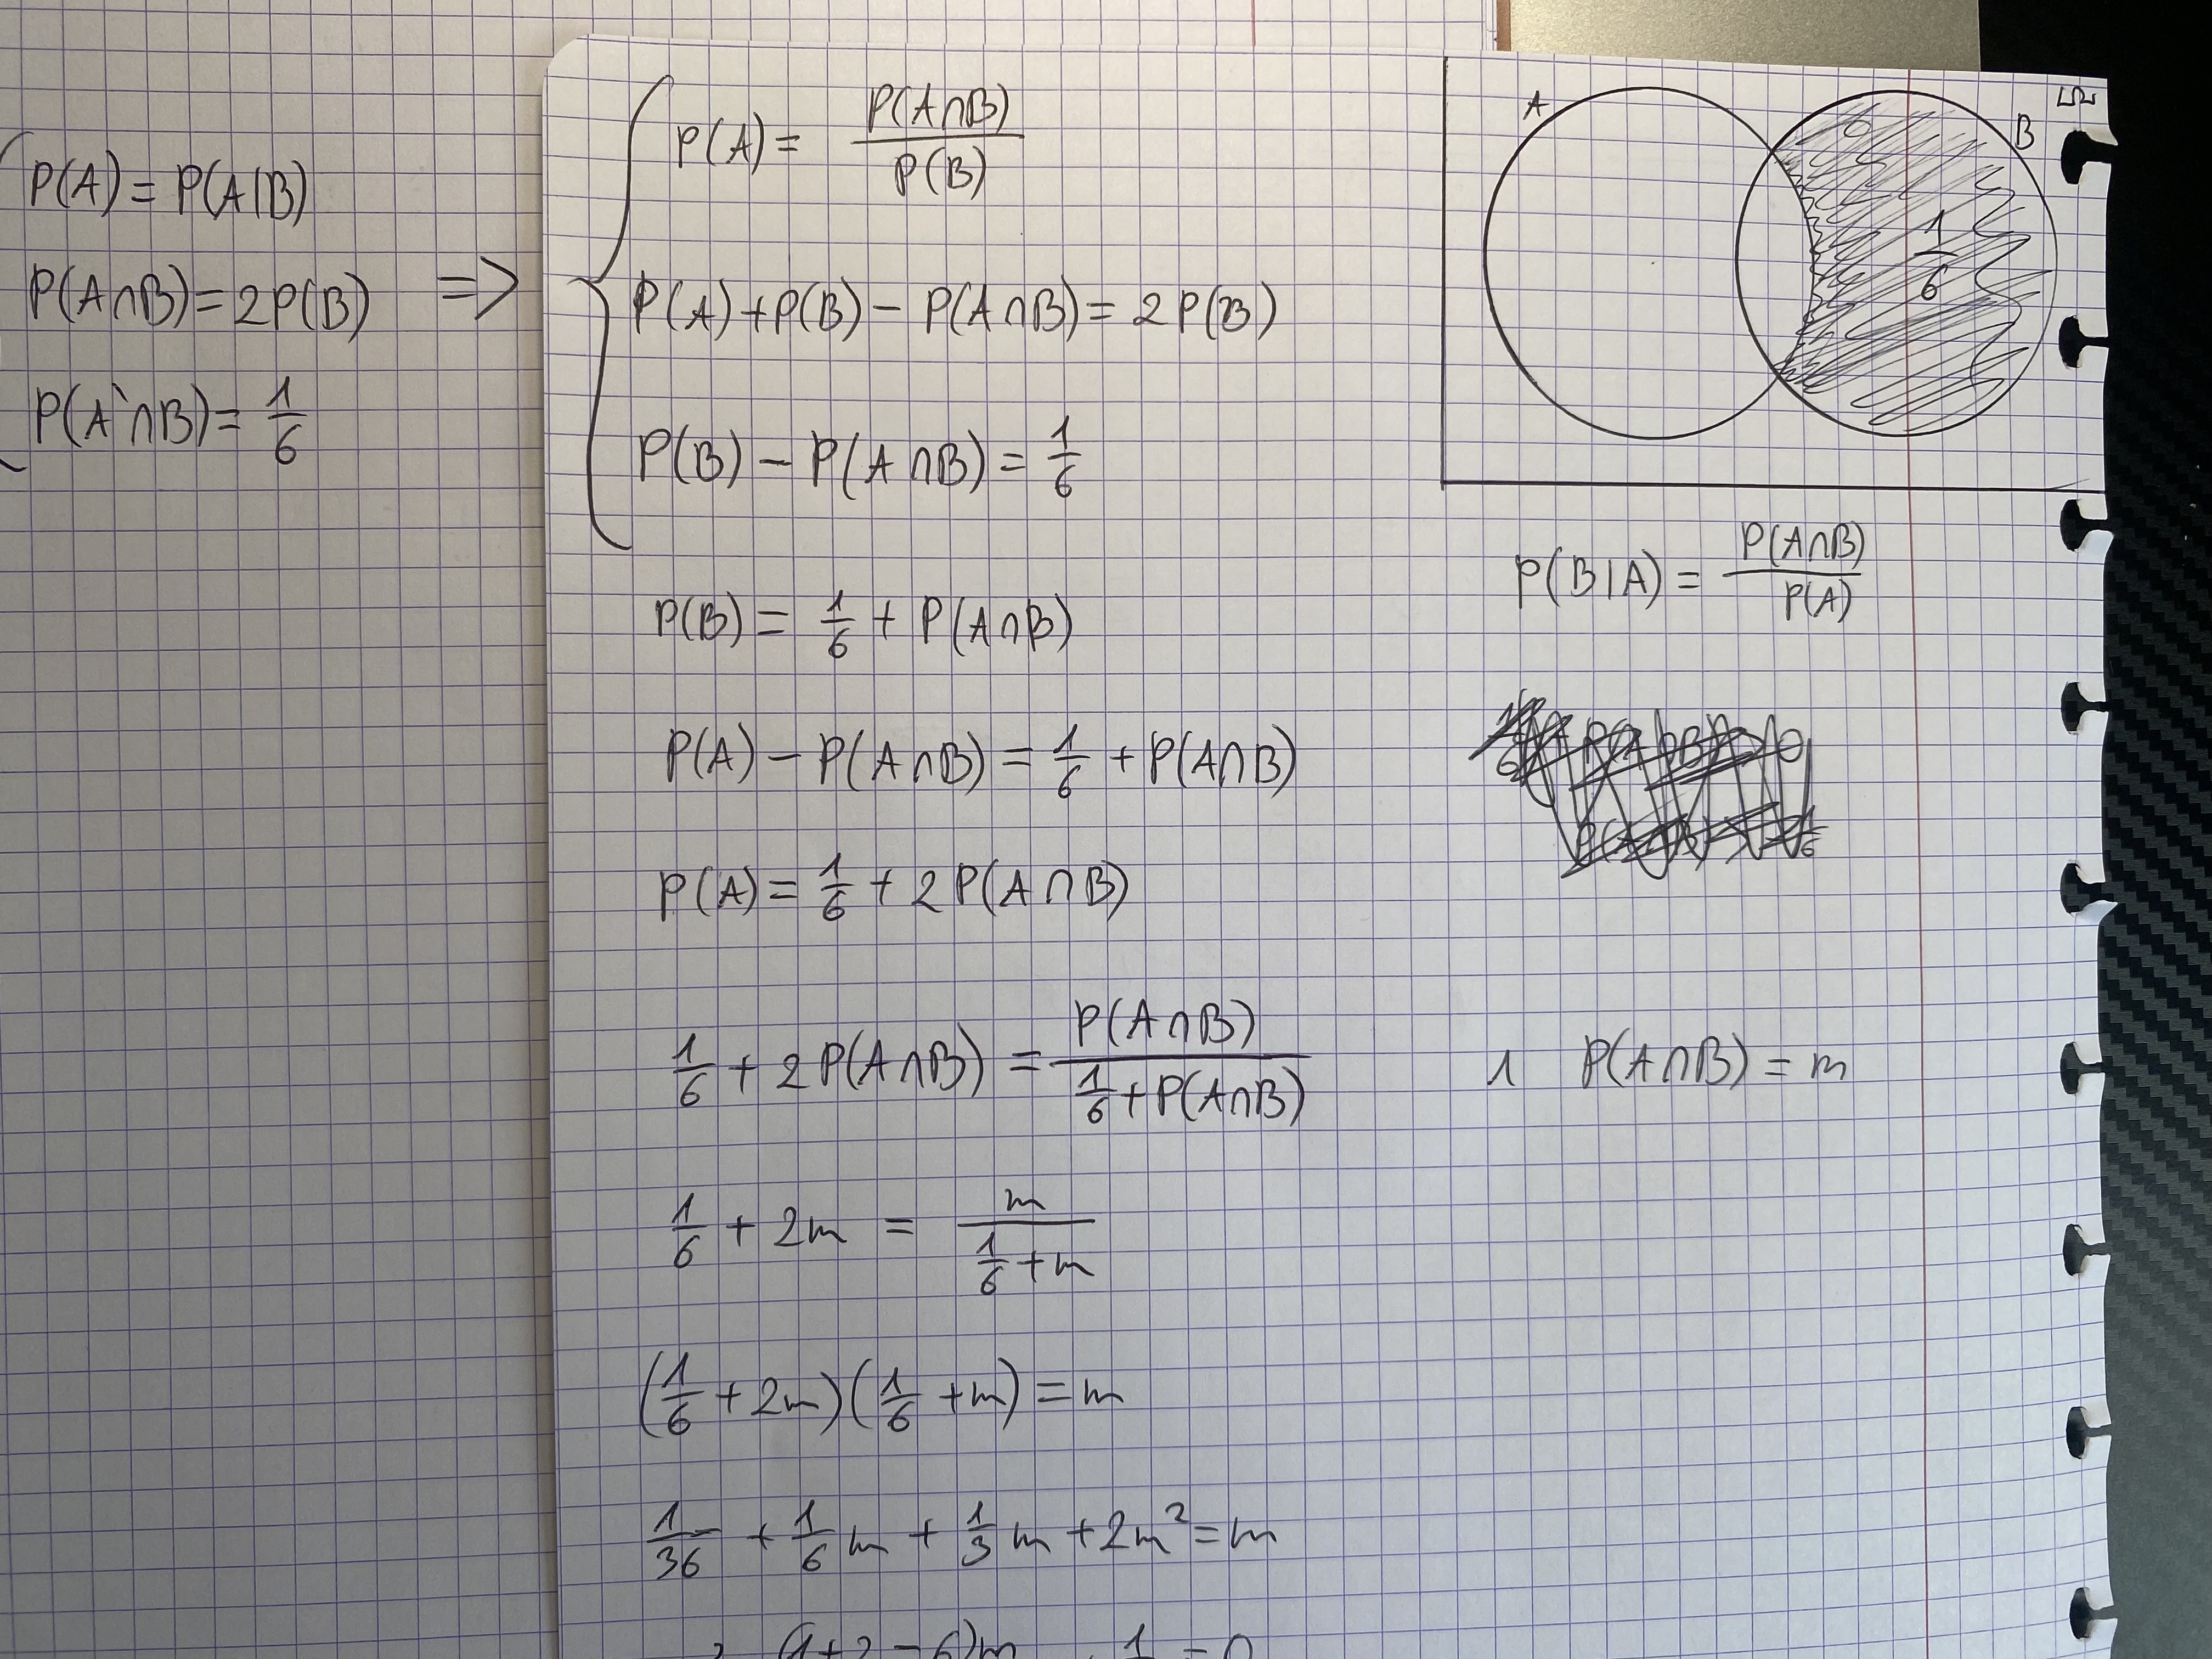 P(A) = P(A|B)
P(A∩B) = 2P(B)
P(A`∩B) = 1/6
=>
P(A) = P(A∩B) / P(B)
P(A) + P(B) - P(A∩B) = 2P(B)
P(B) - P(A∩B) = 1/6
P(B) = 1/6 + P(A∩B)
P(A) - P(A∩B) = 1/6 + P(A∩B)
P(A) = 1/6 + 2P(A∩B)
1/6 + 2P(A∩B) = P(A∩B) / (1/6 + P(A∩B))
1/6 + 2m = m / (1/6 + m)
(1/6 + 2m)(1/6 + m) = m
1/36 + 1/6 m + 1/3 m + 2m² = m
A
B
1/6
P(B|A) = P(A∩B) / P(A)
1 P(A∩B) = m